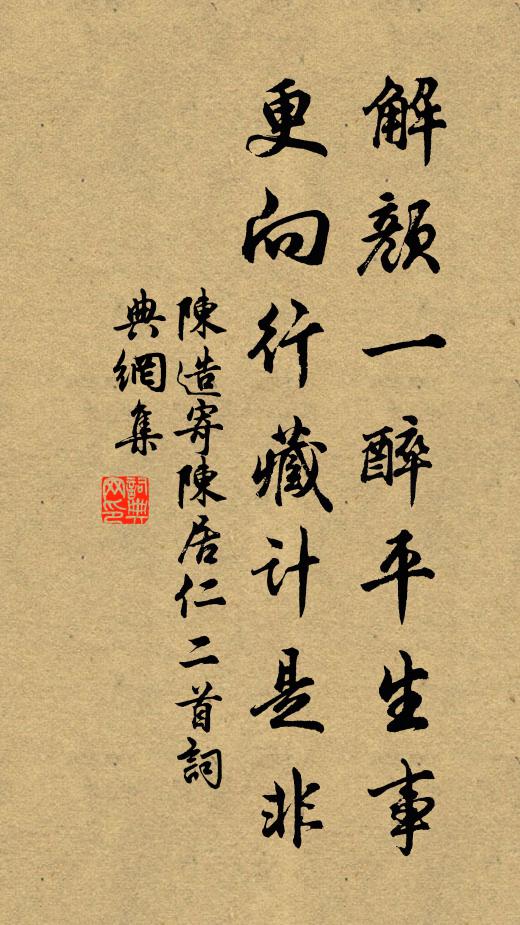 解顏一醉平生事
更向行藏計是非
陳造寄陳居仁二首詞
典網集
詞典網印